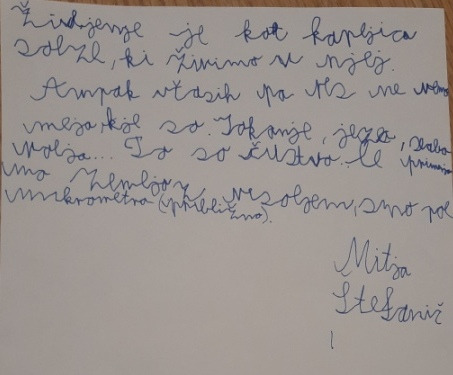 Življenje je kot kapljica
solze, ki živimo v njej.
Ampak včasih pa res ne vemo
meja kje so. Jokanje, jeza, slaba
volja... To so čustva. Če primerja
mo Zemljo z vesoljem, smo pol
mikrometra (približno).
Mitja
Štefanič